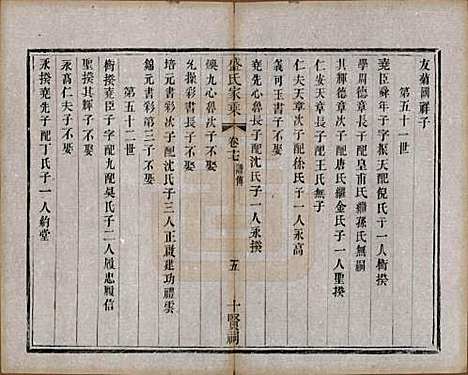 友菊圖祥子
第五十一世
堯臣舜年子字振天配倪氏子一人衔揆
學周德章長子配皇甫氏繼孫氏無嗣
其輝德章次子配唐氏繼金氏子一人聖揆
仁安天章長子配王氏無子
仁夫天章次子配徐氏子一人永高
義可玉書子不娶
克先心魯長子配沈氏子一人永揆
盛氏家乘
卷十七 譜傳
五
十賢祠
煥九心魯次子不娶
允揚書彩長子不娶
培元書彩次子配沈氏子三人正啟建功禮雲
錦元書彩第三子不娶
第五十二世
衔揆堯臣子字配九配吳氏子二人履忠履信
聖揆其輝子不娶
永高仁夫子不娶
永揆堯先子配丁氏子一人約堂